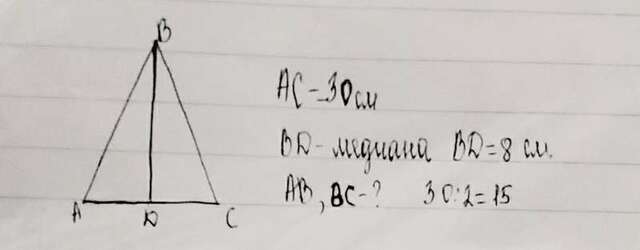 B
AC-30см
BD-медиана BD=8 см.
AB, BC-? 30:2=15
A D C